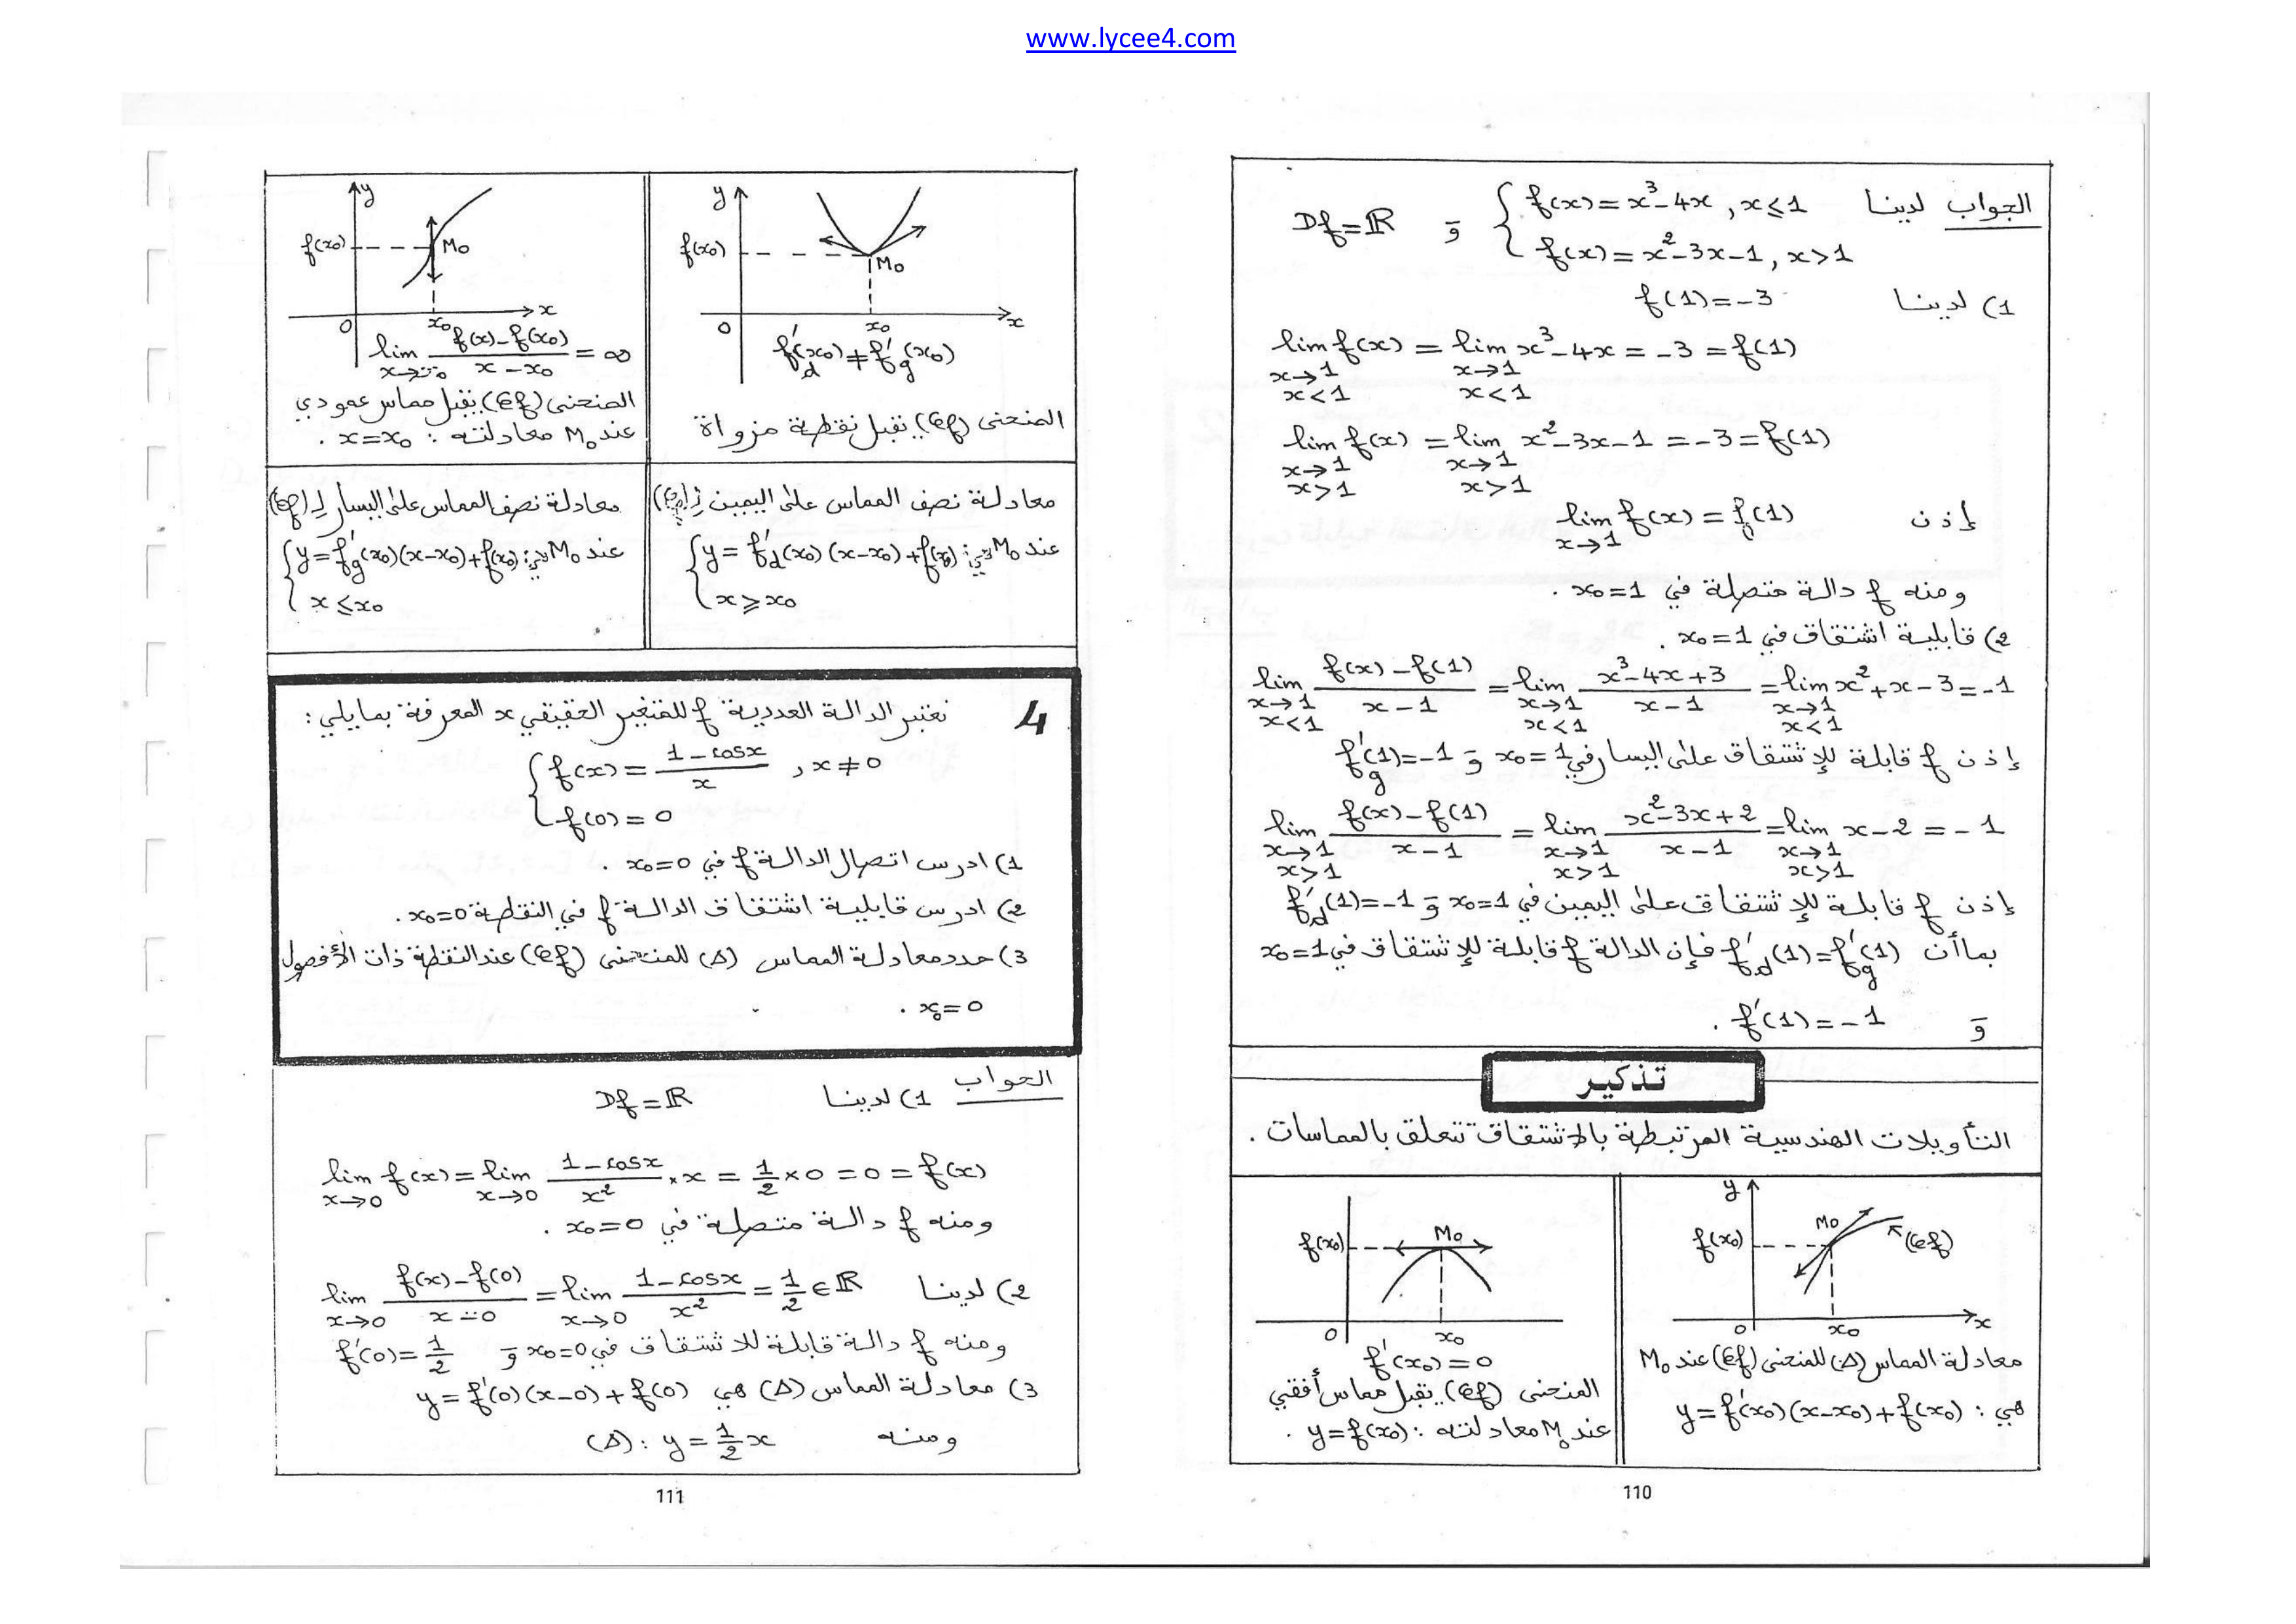 www.lycee4.com
الجواب لدينا { f(x) = x³ - 4x , x ≤ 1 و Df = ℝ
f(x) = x² - 3x - 1 , x > 1
1) لدينا f(1) = -3
lim f(x) = lim x³ - 4x = -3 = f(1)
x→1 x→1
x<1 x<1
lim f(x) = lim x² - 3x - 1 = -3 = f(1)
x→1 x→1
x>1 x>1
إذن lim f(x) = f(1)
x→1
ومنه f دالة متصلة في x₀ = 1 .
2) قابلية اشتقاق في x₀ = 1 .
lim (f(x) - f(1))/(x - 1) = lim (x³ - 4x + 3)/(x - 1) = lim x² + x - 3 = -1
x→1 x→1 x→1
x<1 x<1 x<1
إذن f قابلة للإشتقاق على اليسار في x₀ = 1 و f'g(1) = -1
lim (f(x) - f(1))/(x - 1) = lim (x² - 3x + 2)/(x - 1) = lim x - 2 = -1
x→1 x→1 x→1
x>1 x>1 x>1
إذن f قابلة للإشتقاق على اليمين في x₀ = 1 و f'd(1) = -1
بما أن f'd(1) = f'g(1) فإن الدالة f قابلة للإشتقاق في x₀ = 1
و f'(1) = -1 .
تذكير
التأويلات الهندسية المرتبطة بالاشتقاق تتعلق بالمماسات .
y
M₀
f(x₀)
(Cf)
O x₀ x
معادلة المماس (Δ) للمنحنى (Cf) عند M₀
هي : y = f'(x₀)(x - x₀) + f(x₀)
f(x₀) M₀
O x₀
f'(x₀) = 0
المنحنى (Cf) يقبل مماس أفقي
عند M₀ معادلته : y = f(x₀) .
110
y
f(x₀)
M₀
O x₀ x
f'd(x₀) ≠ f'g(x₀)
المنحنى (Cf) يقبل نقطة مزواة
y
f(x₀) M₀
O x₀ x
lim (f(x) - f(x₀))/(x - x₀) = ∞
x→x₀
المنحنى (Cf) يقبل مماس عمودي
عند M₀ معادلته : x = x₀ .
معادلة نصف المماس على اليمين لـ (Cf)
عند M₀ هي : { y = f'd(x₀)(x - x₀) + f(x₀)
x ≥ x₀
معادلة نصف المماس على اليسار لـ (Cf)
عند M₀ هي : { y = f'g(x₀)(x - x₀) + f(x₀)
x ≤ x₀
4 نعتبر الدالة العددية f للمتغير الحقيقي x المعرفة بمايلي :
{ f(x) = (1 - cosx)/x , x ≠ 0
f(0) = 0
1) ادرس اتصال الدالة f في x₀ = 0 .
2) ادرس قابلية اشتقاق الدالة f في النقطة x₀ = 0 .
3) حدد معادلة المماس (Δ) للمنحنى (Cf) عند النقطة ذات الأفصول
x₀ = 0 .
الجواب 1) لدينا Df = ℝ
lim f(x) = lim (1 - cosx)/x² × x = 1/2 × 0 = 0 = f(x)
x→0 x→0
ومنه f دالة متصلة في x₀ = 0 .
2) لدينا lim (f(x) - f(0))/(x - 0) = lim (1 - cosx)/x² = 1/2 ∈ ℝ
x→0 x→0
ومنه f دالة قابلة للاشتقاق في x₀ = 0 و f'(0) = 1/2
3) معادلة المماس (Δ) هي y = f'(0)(x - 0) + f(0)
ومنه (Δ) : y = 1/2 x
111